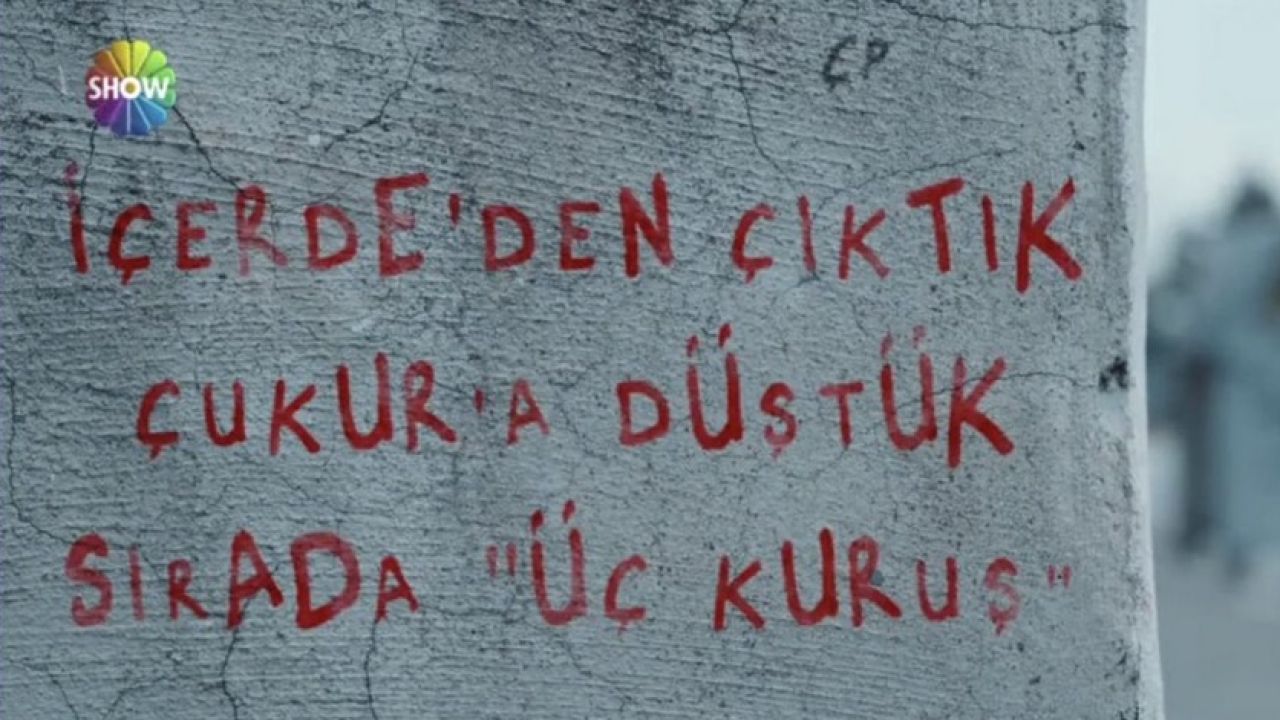 SHOW
ÇP
İÇERDE'DEN ÇIKTIK
ÇUKUR'A DÜŞTÜK
SIRADA "ÜÇ KURUŞ"